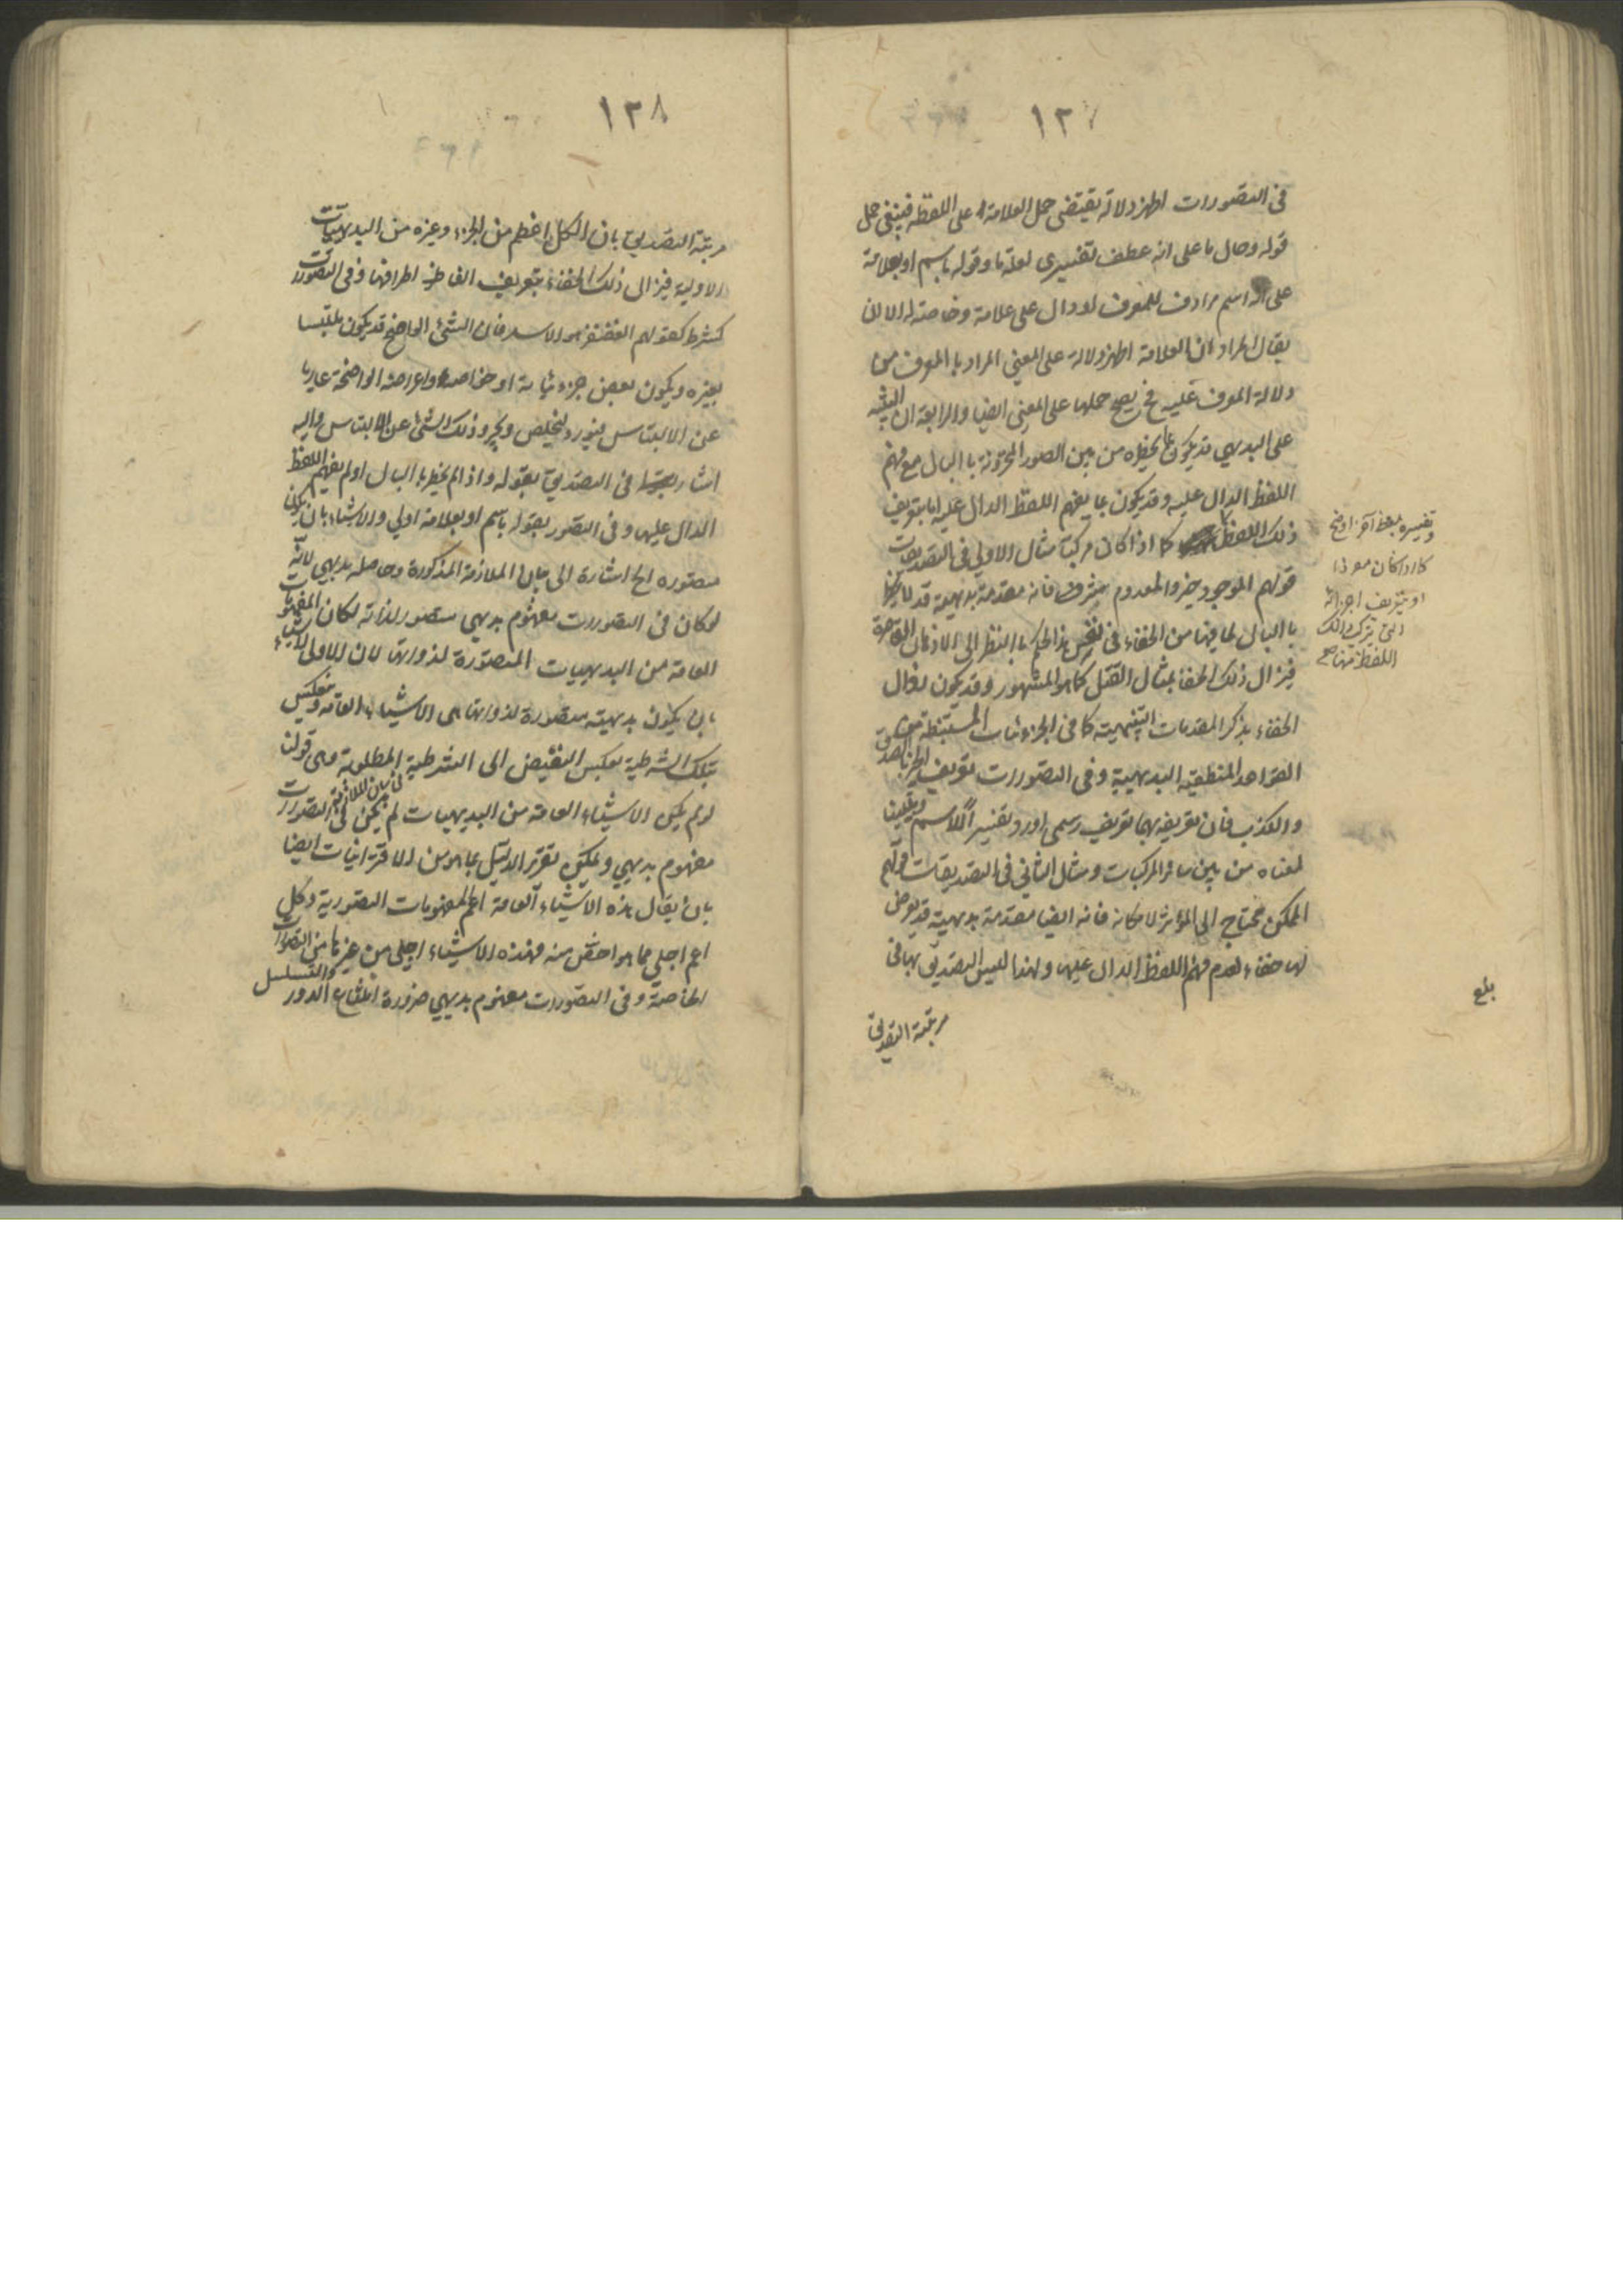 ١٣٧
في التصورات اظهر دلالة يقتضي حمل العلامة على اللفظة فينبغي حمل
قوله وحال ما على انه عطف تفسيري لعلة ما وقوله باسم او بعلامة
على انه اسم مرادف للمعرف او دال على علامة وخاصة له الا ان
يقال المراد ان العلامة اظهر دلالة على المعنى المراد بالمعرف من
دلالة المعرف عليه فح يصح حملها على المعنى ايضا والرابعة ان التنبيه
على البديهي قد يكون بما يخطره من بين الصور المخزونة بالبال مع فهم
اللفظ الدال عليه وقد يكون بما يفهم اللفظ الدال عليه اما بتعريف
ذلك اللفظ كما اذا كان مركبا مثال الاول في التصديقات
قولهم الموجود خير والمعدوم شر فانه مقدمة بديهية قد لا
بالبال لما فيها من الخفاء في نفس هذا الحكم بالنظر الى الاذهان القاصرة
فيزال ذلك الخفاء بمثال القتل كما هو المشهور وقد يكون يزال
الخفاء بذكر المقدمات التنبيهية كما في الجزئيات المستنبطة من
القواعد المنطقية البديهية وفي التصورات تعريف الخبر بالصدق
والكذب فان تعريفه بهما تعريف رسمي اورد تفسيرا للاسم وتعيينا
لمعناه من بين سائر المركبات ومثال الثاني في التصديقات قولهم
الممكن محتاج الى المؤثر لامكانه فانه ايضا مقدمة بديهية قد يعرض
لها خفاء لعدم فهم اللفظ الدال عليها ولهذا ليس التصديق بها في
مرتبة التصديق
وتفسيره بلفظ آخر اوضح
كما اذا كان مفردا
او بتعريف اجزائه
التي تركب ذلك
اللفظ منها صح
بلغ
١٣٨
مرتبة التصديق بان الكل اعظم من الجزء وغيره من البديهيات
الاولية فيزال ذلك الخفاء بتعريف الفاظ اطرافها وفي التصورات
كقولهم الغضنفر هو الاسد فان الشيء الواضح قد يكون ملتبسا
بغيره ويكون بعض جزئياته او خواصه واعراضه الواضحة عاريا
عن الالتباس فيورد لتخليص ذلك الشيء عن الالتباس واليه
اشار في التصديق بقوله واذا لم يخطر بالبال او لم يفهم اللفظ
الدال عليها وفي التصور بقوله باسم او بعلامة اولى والاشياء بان يكون
متصورة الخ اشارة الى بيان الملازمة المذكورة وحاصله بديهي لانه
لو كان في التصورات مفهوم بديهي متصور لذاته لكان المفهومات
العامة من البديهيات المتصورة لذواتها لان الاولى الاشياء
بان يكون بديهية متصورة لذواتها هي الاشياء العامة وينعكس
تلك الشرطية بعكس النقيض الى الشرطية المطلوبة وهي قولنا
لو لم يكن الاشياء العامة من البديهيات لم يكن في التصورات
مفهوم بديهي ويمكن تقرير الدليل بما هو من الاقترانيات ايضا
بان يقال هذه الاشياء العامة اعم المفهومات التصورية وكل
اعم اجلى مما هو اخص منه فهذه الاشياء اجلى من غيرها من التصورات
الخاصة وفي التصورات مفهوم بديهي ضرورة امتناع الدور والتسلسل